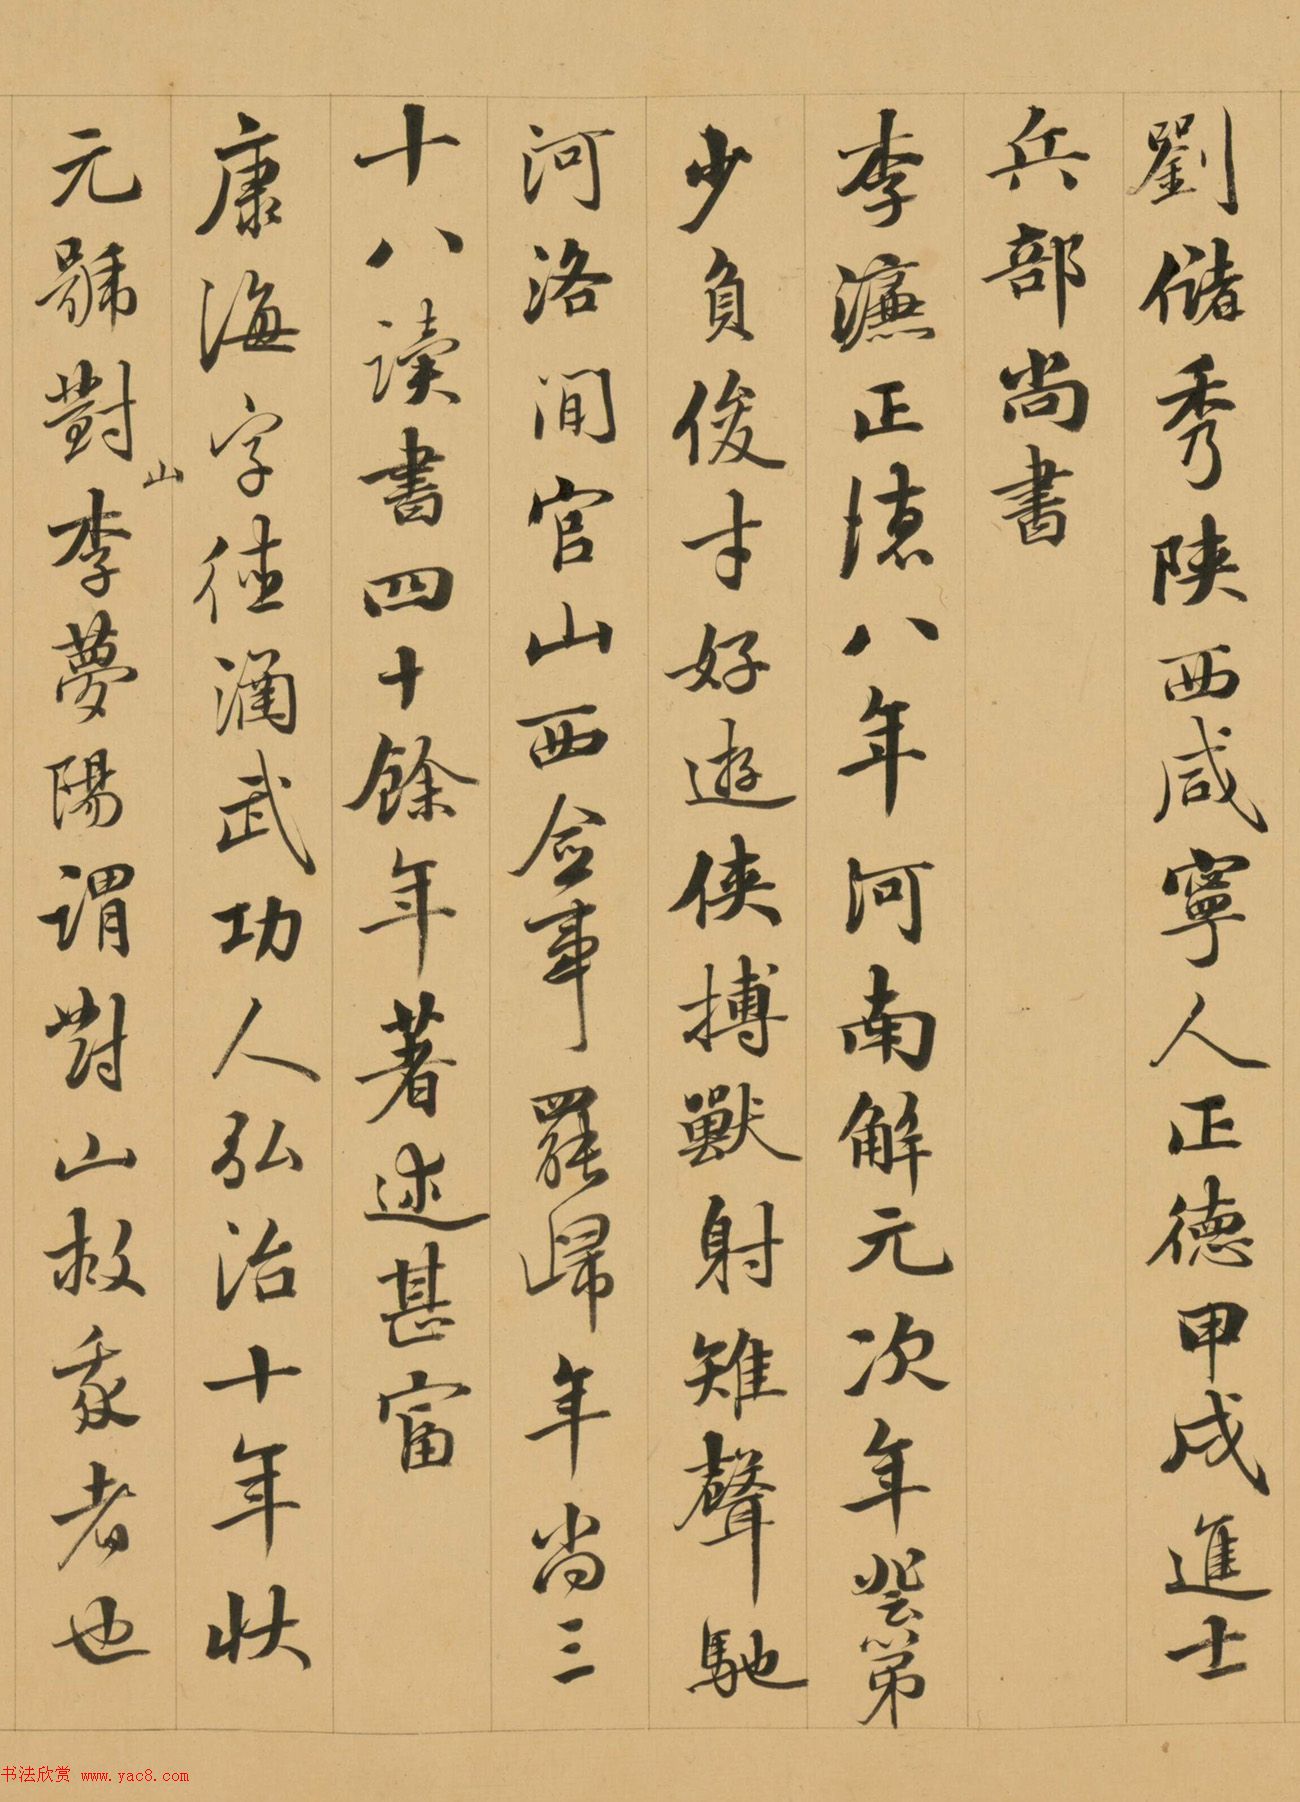 劉儲秀陝西咸寧人正德甲戌進士
兵部尚書
李濂正德八年河南解元次年登第
少負俊才好遊俠搏獸射雉聲馳
河洛間官山西僉事罷歸年尚三
十八讀書四十餘年著述甚富
康海字德涵武功人弘治十年狀
元號對山李夢陽謂對山救我者也
书法欣赏 www.yac8.com